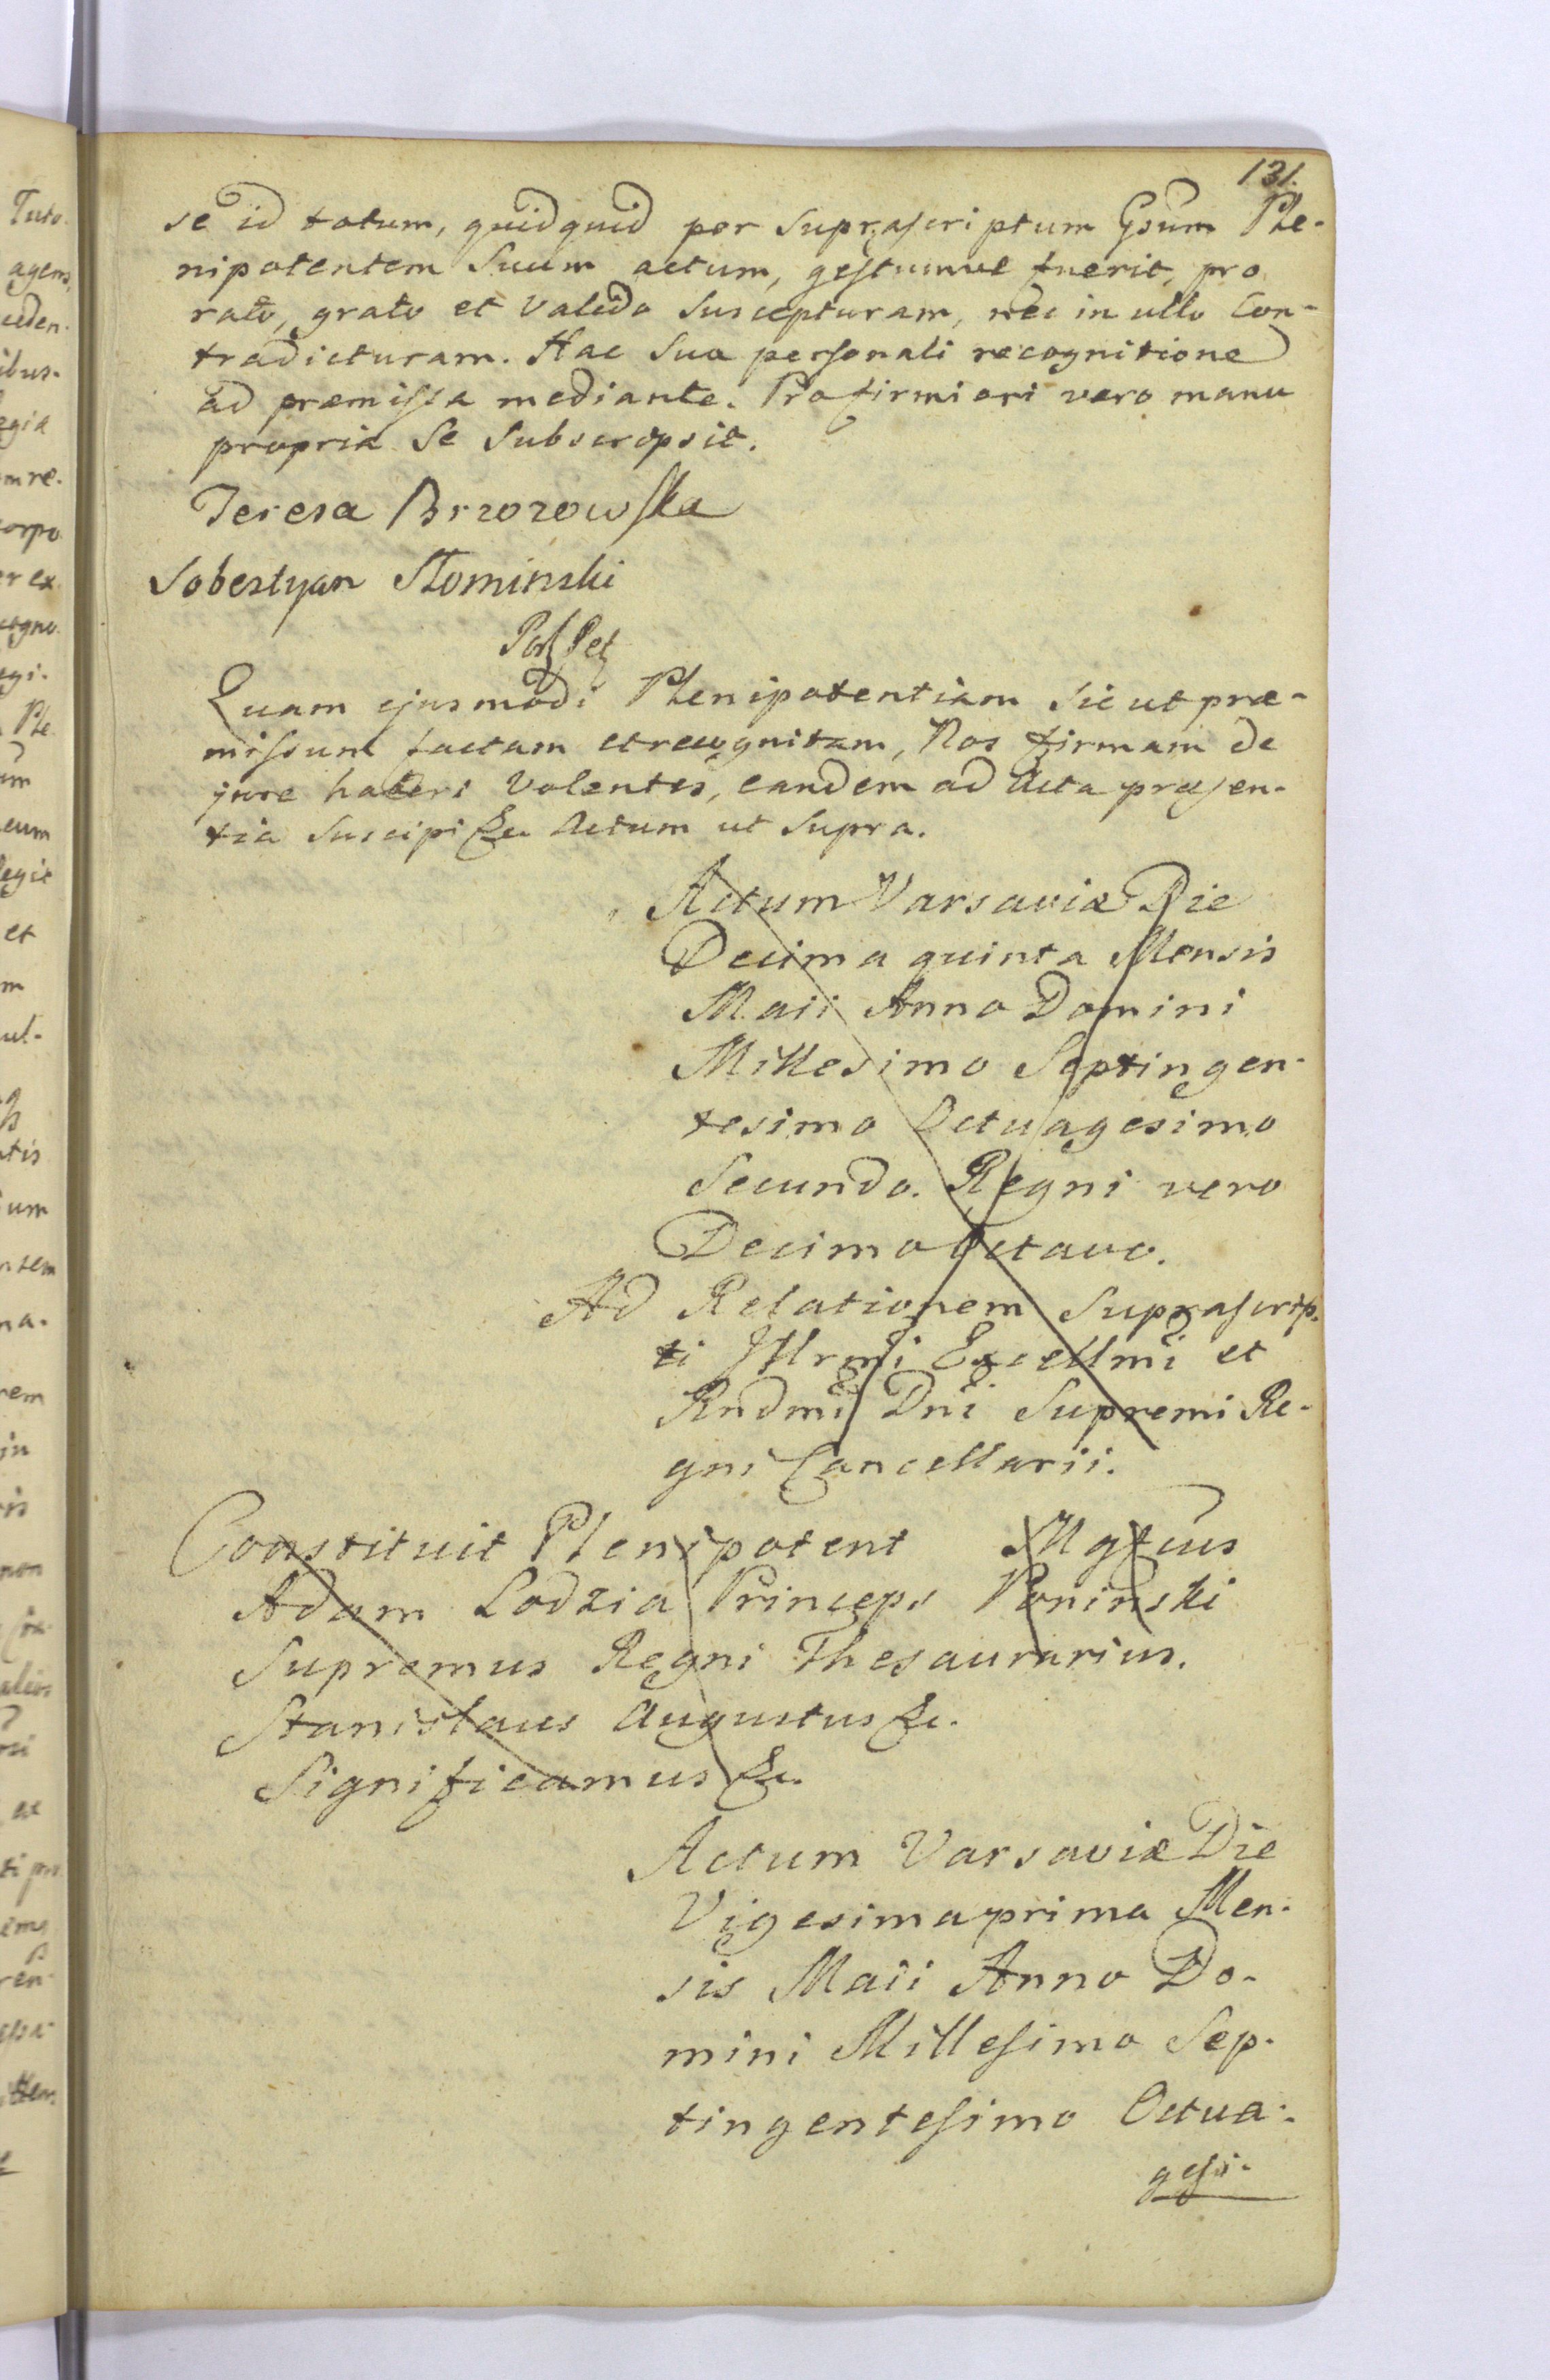 131.
se id totum, quidquid per suprascriptum Gsum Ple-
nipotentem Suum actum, gestumve fuerit, pro
rato, grato et Valido Suscepturam, nec in ullo Con-
tradicturam. Hac Sua personali recognitione
ad præmissa mediante. Pro firmiori vero manu
propria Se Subscripsit.
Teresa Brzozowska
Sobestyan Słominski
Quam ejusmodi Plenipotentiam Sic ut præ-
missum factam et recognitam, Nos firmam de
jure haberi Volentes, eandem ad Acta præsen-
tia suscipi &c. Actum ut Supra.
Actum Varsaviæ Die
Decima quinta Mensis
Maii Anno Domini
Millesimo Septingen-
tesimo Octuagesimo
Secundo. Regni vero
Decimo Octavo.
Ad Relationem Suprascrip-
ti Illrmi Excellmi et
Rndmi Dni Supremi Re-
gni Cancellarii.
Constituit Plenipotent Mgfcus
Adam Lodzia Princeps Poninski
Supremus Regni Thesaurarius.
Stanislaus Augustus &c.
Significamus &c.
Actum Varsaviæ Die
Vigesima prima Men-
sis Maii Anno Do-
mini Millesimo Sep-
tingentesimo Octua-
gesi-
Tuto
agens,
ceden-
ibus-
egia
m re-
corpo
er ex
cogno
egi-
Ple
um
eum
legit
et
m
ul-
tis
um
ntem
na-
rem
in
is
non
alios
ti pro
ems
ren-